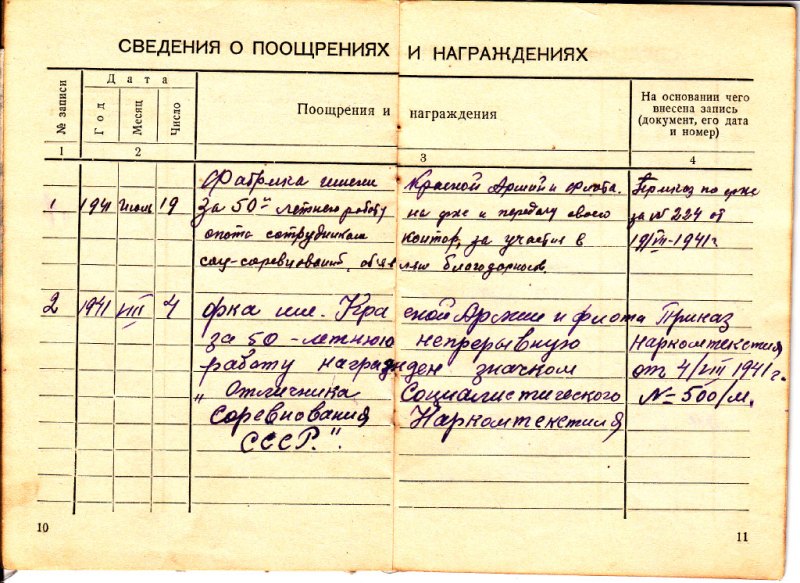 СВЕДЕНИЯ О ПООЩРЕНИЯХ И НАГРАЖДЕНИЯХ
№ записи
Дата
Год
Месяц
Число
Поощрения и награждения
На основании чего
внесена запись
(документ, его дата
и номер)
1 2 3 4
Фабрика имени Красной Армии и флота. Приказ по фке
1 1941 июль 19 за 50ти летнюю работу на фке и передачу своего за № 224 от
опыта сотрудникам контор, за участие в 19/VII-1941г
соц-соревнований, благодарность.
2 1941 VIII 4 фка им. Красной Армии и флота Приказ
за 50-летнюю непрерывную Наркомтекстиля
работу награжден значком от 4/VIII 1941г.
„Отличника Социалистического №-500/м.
соревнования Наркомтекстиля
СССР."
10
11